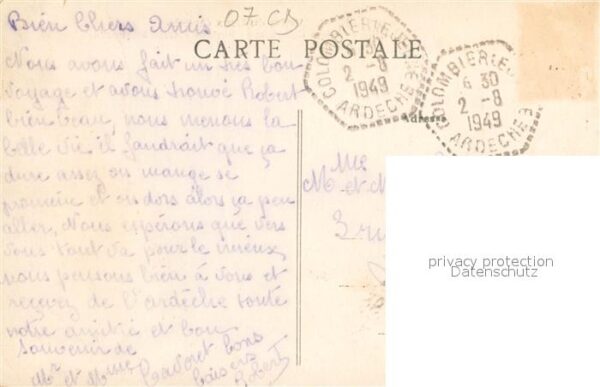 Bien Chers Amis
07 CD
CARTE POSTALE
COLOMBIER-LE-J
6 30
2 - 8
1949
ARDECHE
COLOMBIER-LE-J
6 30
2 - 8
1949
ARDECHE
Adresse
Nous avons fait un très bon
voyage et avons trouvé Robert
bien beau, nous menons la
belle vie il faudrait que ça
dure assez on mange se
promène et on dors alors ça peu
aller, Nous espérons que vers
vous tout va pour le mieux
nous pensons bien à vous et
recevez de l'ardèche toute
notre amitié et bon
Souvenir de
Mr et Mme bons
baisers
Robert
Mme
Mr et M
3 ru
privacy protection
Datenschutz